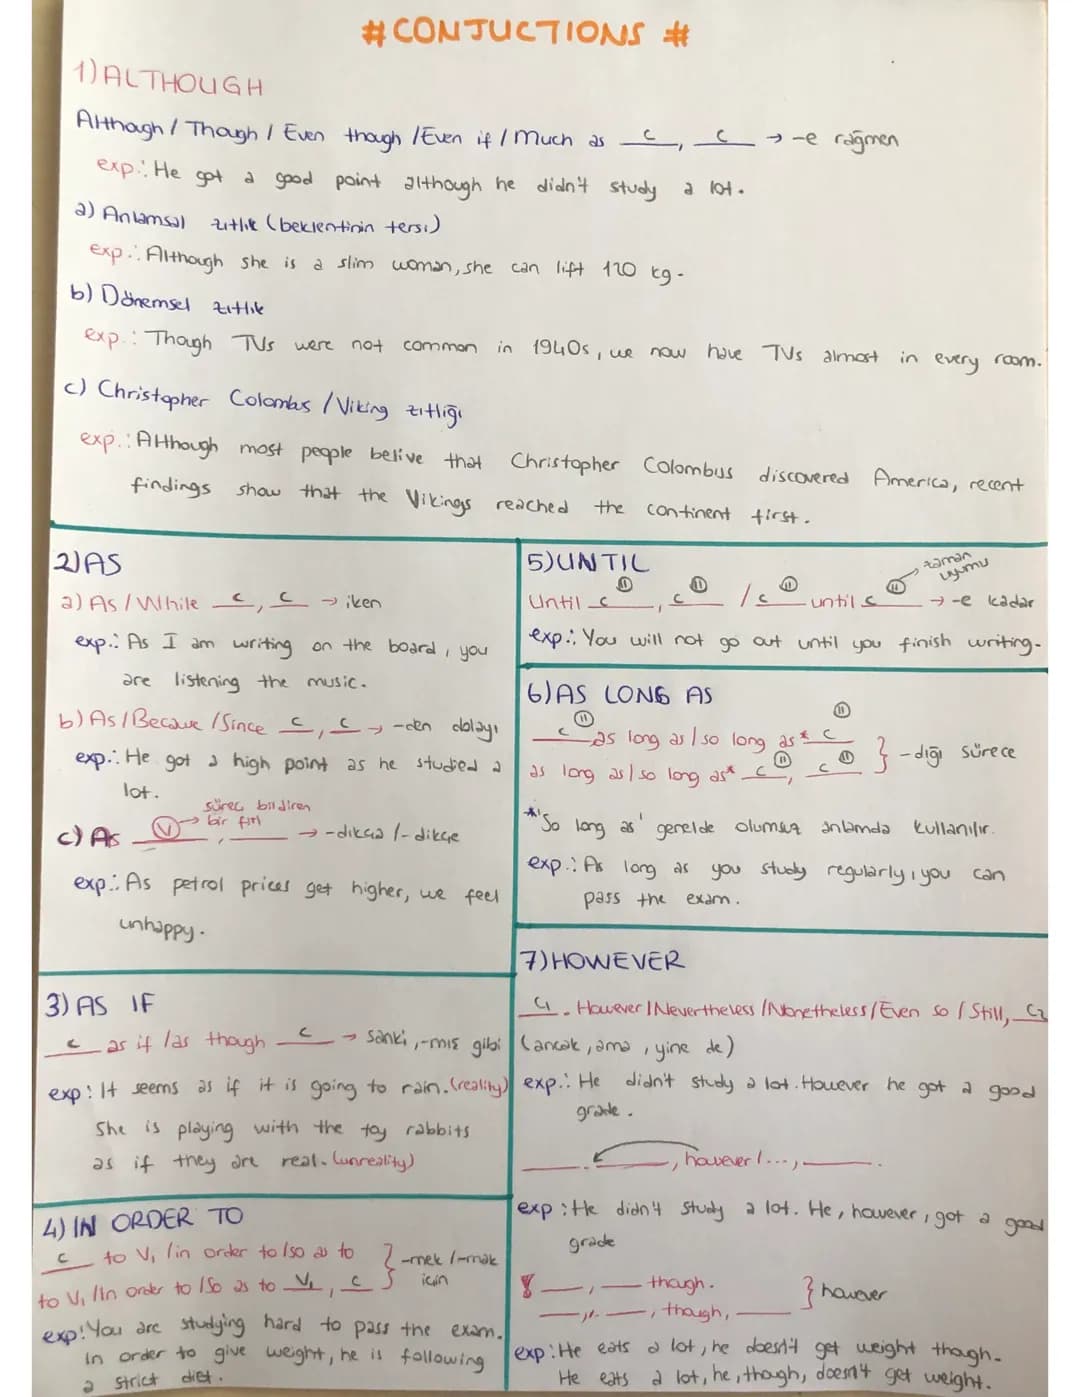 # CONJUCTIONS #
1) ALTHOUGH
Although / Though / Even though / Even if / Much as __c__, __c__ → -e rağmen
exp.: He got a good point although he didn't study a lot.
a) Anlamsal zıtlık (beklentinin tersi)
exp.: Although she is a slim woman, she can lift 120 kg.
b) Dönemsel zıtlık
exp.: Though TVs were not common in 1940s, we now have TVs almost in every room.
c) Christopher Colombus / Viking zıtlığı
exp.: Although most people belive that Christopher Colombus discovered America, recent
findings show that the Vikings reached the continent first.
2) AS
a) As / While __c__, __c__ → iken
exp.: As I am writing on the board, you
are listening the music.
b) As / Because / Since __c__, __c__ → -den dolayı
exp.: He got a high point as he studied a
lot.
süreç bildiren
→ bir fiil
c) As __(V)__, ____ → -dıkça / -dikçe
exp.: As petrol prices get higher, we feel
unhappy.
3) AS IF
__c__ as if / as though __c__ → sanki, -mış gibi
exp: It seems as if it is going to rain. (reality)
She is playing with the toy rabbits
as if they are real. (unreality)
4) IN ORDER TO
__c__ to V₁ / in order to / so as to } -mek / -mak
to V₁ / In order to / So as to __V₁__, __c__ } için
exp: You are studying hard to pass the exam.
In order to give weight, he is following
a strict diet.
5) UNTIL
zaman
uyumu
Until __c__ (11), __c__ (11) / __c__ (11) until __c__ (11) → -e kadar
exp.: You will not go out until you finish writing.
6) AS LONG AS
__c__ (11) as long as / so long as* __c__ (11) } -dığı sürece
as long as / so long as* __c__ (11), __c__ (11)
*'So long as' genelde olumsuz anlamda kullanılır.
exp.: As long as you study regularly, you can
pass the exam.
7) HOWEVER
__C₁__. However / Nevertheless / Nonetheless / Even so / Still, __C₂__
(ancak, ama, yine de)
exp.: He didn't study a lot. However he got a good
grade.
____. ____, however / ..., ____.
exp: He didn't study a lot. He, however, got a good
grade
____, ____ though. } however
____, ____, though, ____
exp: He eats a lot, he doesn't get weight though.
He eats a lot, he, though, doesn't get weight.